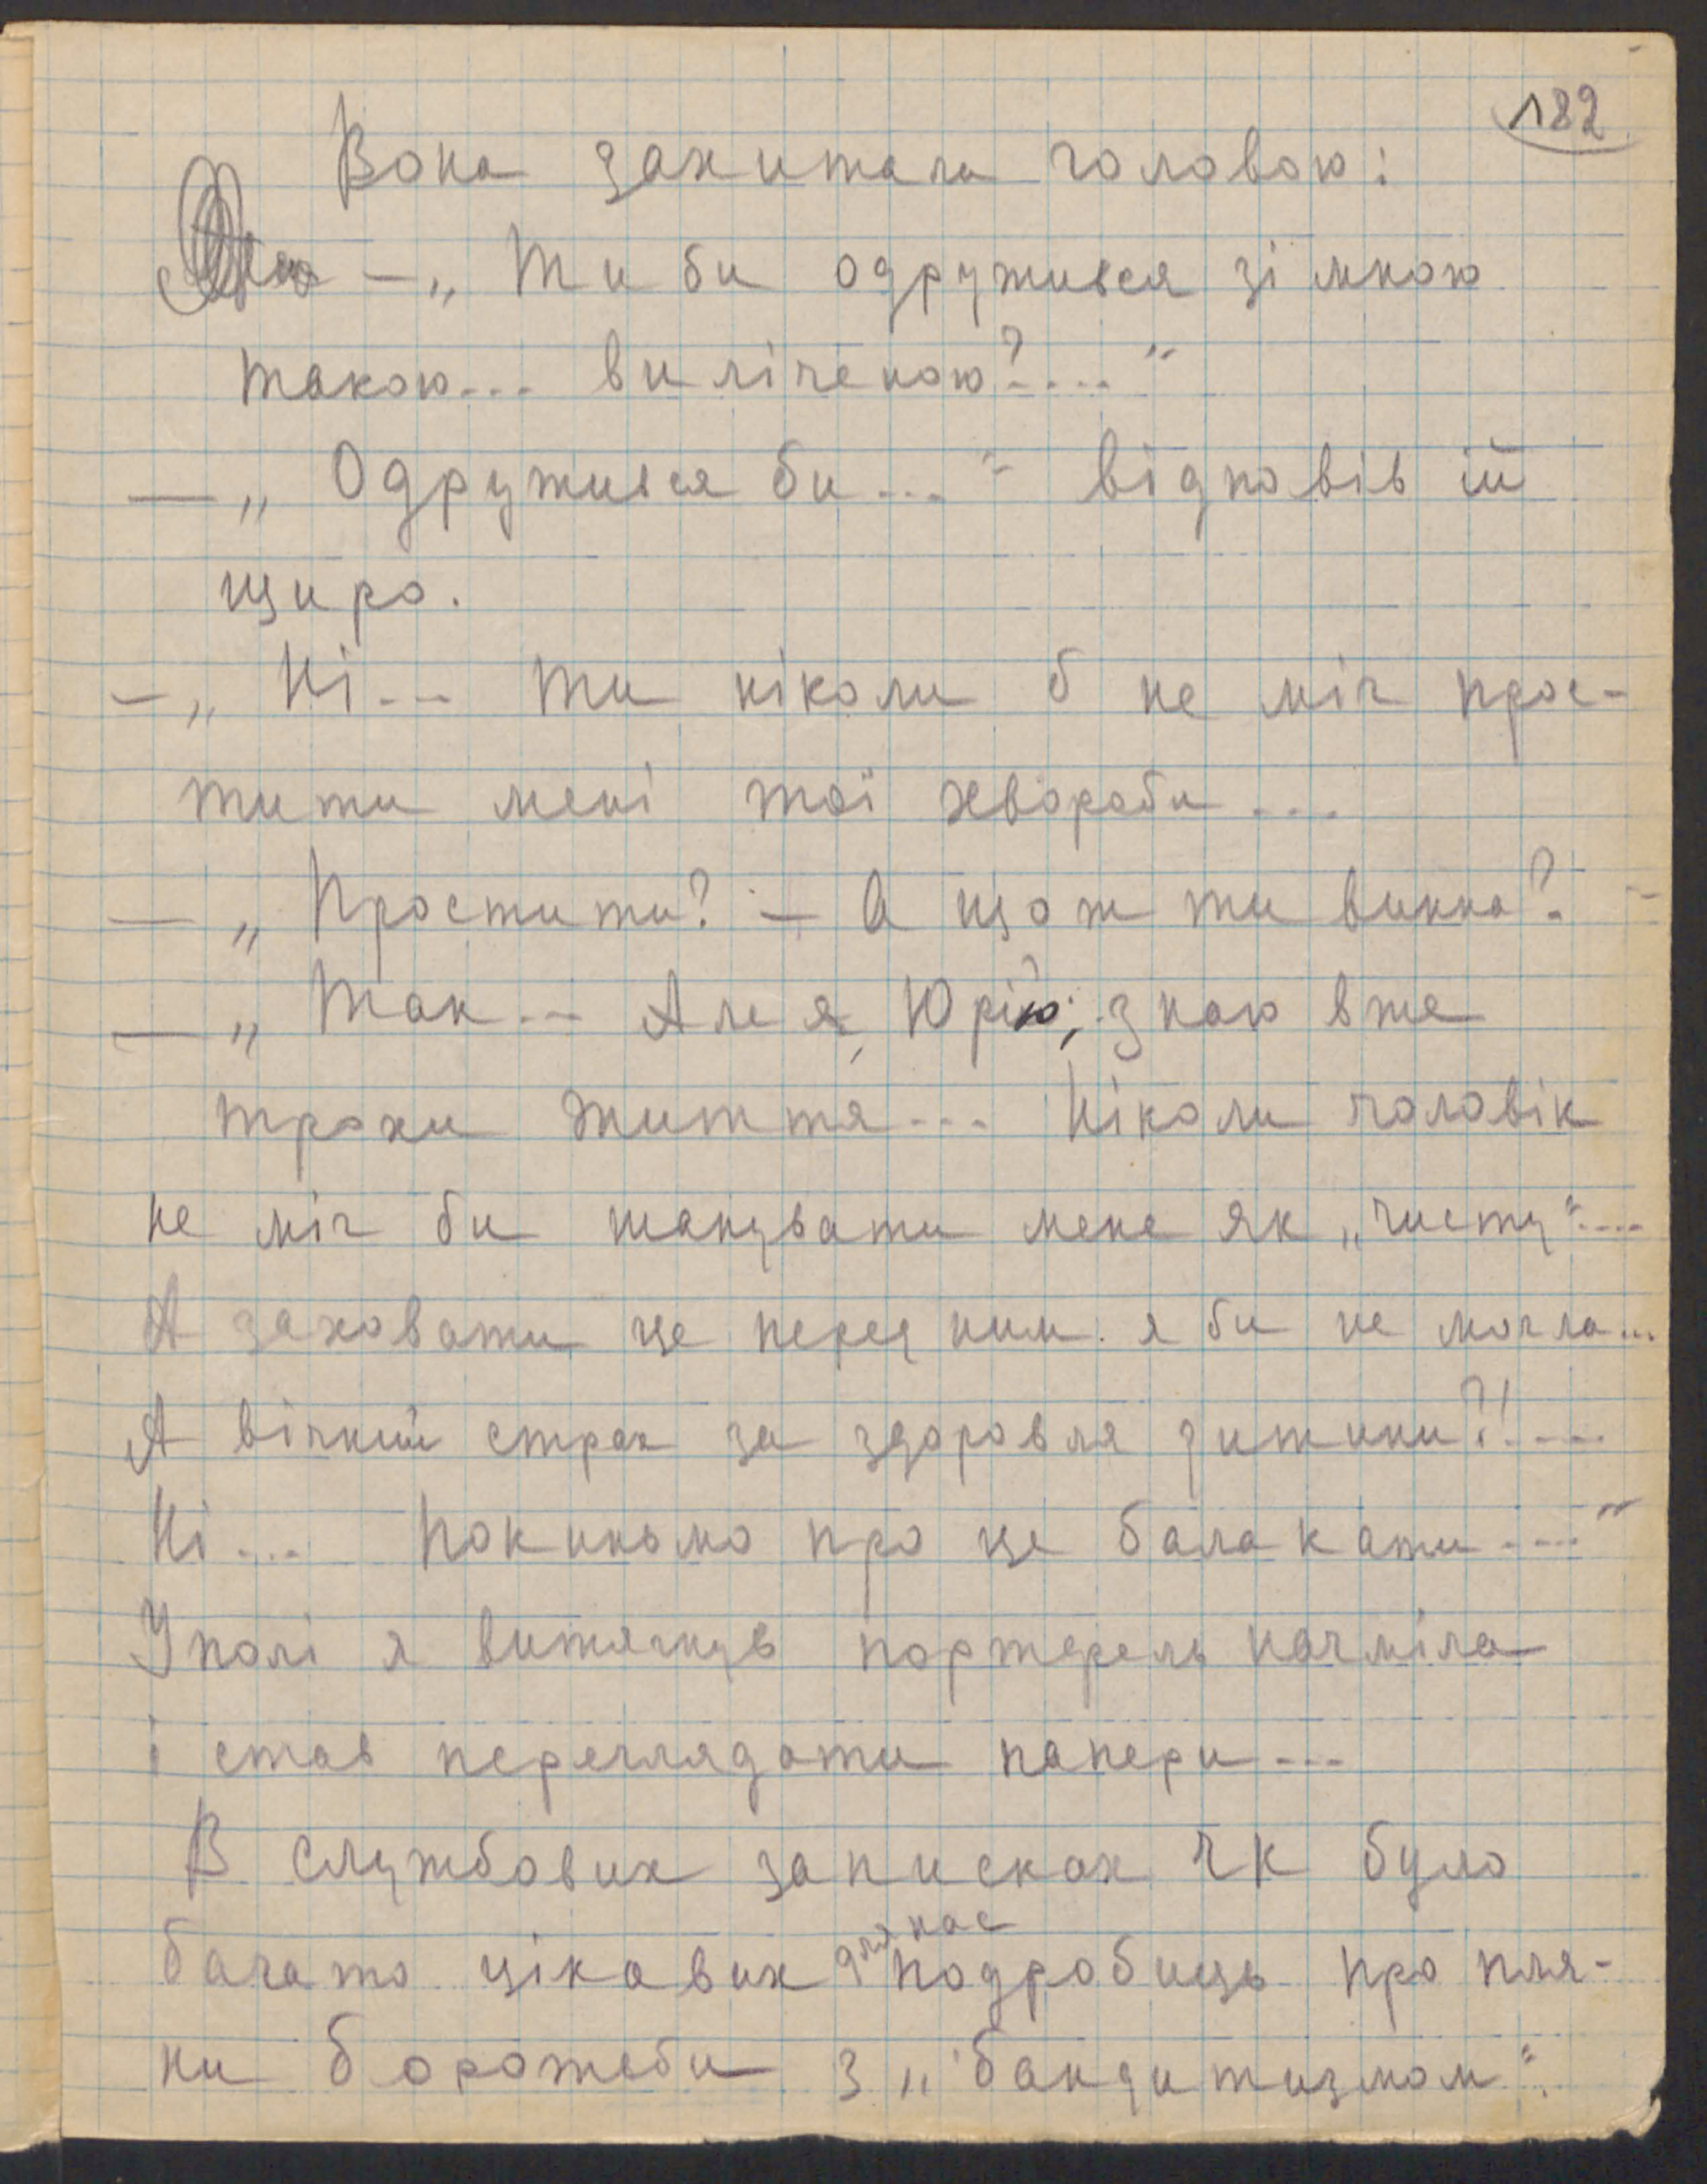 182
Вона захитала головою:
— „Ти би одружився зі мною
такою... виліченою?...."
— „Одружився би..." відповів їй
щиро.
— „Ні... Ти ніколи б не міг прос-
тити мені тої хвороби...
— „Простити? — А що ж ти винна?
— „Так... Але я, Юрію, знаю вже
трохи життя... Ніколи чоловік
не міг би шанувати мене як „чисту"....
А заховати це перед ним я би не могла...
А вічний страх за здоровля дитини?!....
Ні... Покиньмо про це балакати...."
У полі я витягнув портфель начміла
і став переглядати папери...
В службових записках ЧК було
для нас
багато цікавих подробиць про пля-
ни боротьби з „бандитизмом".